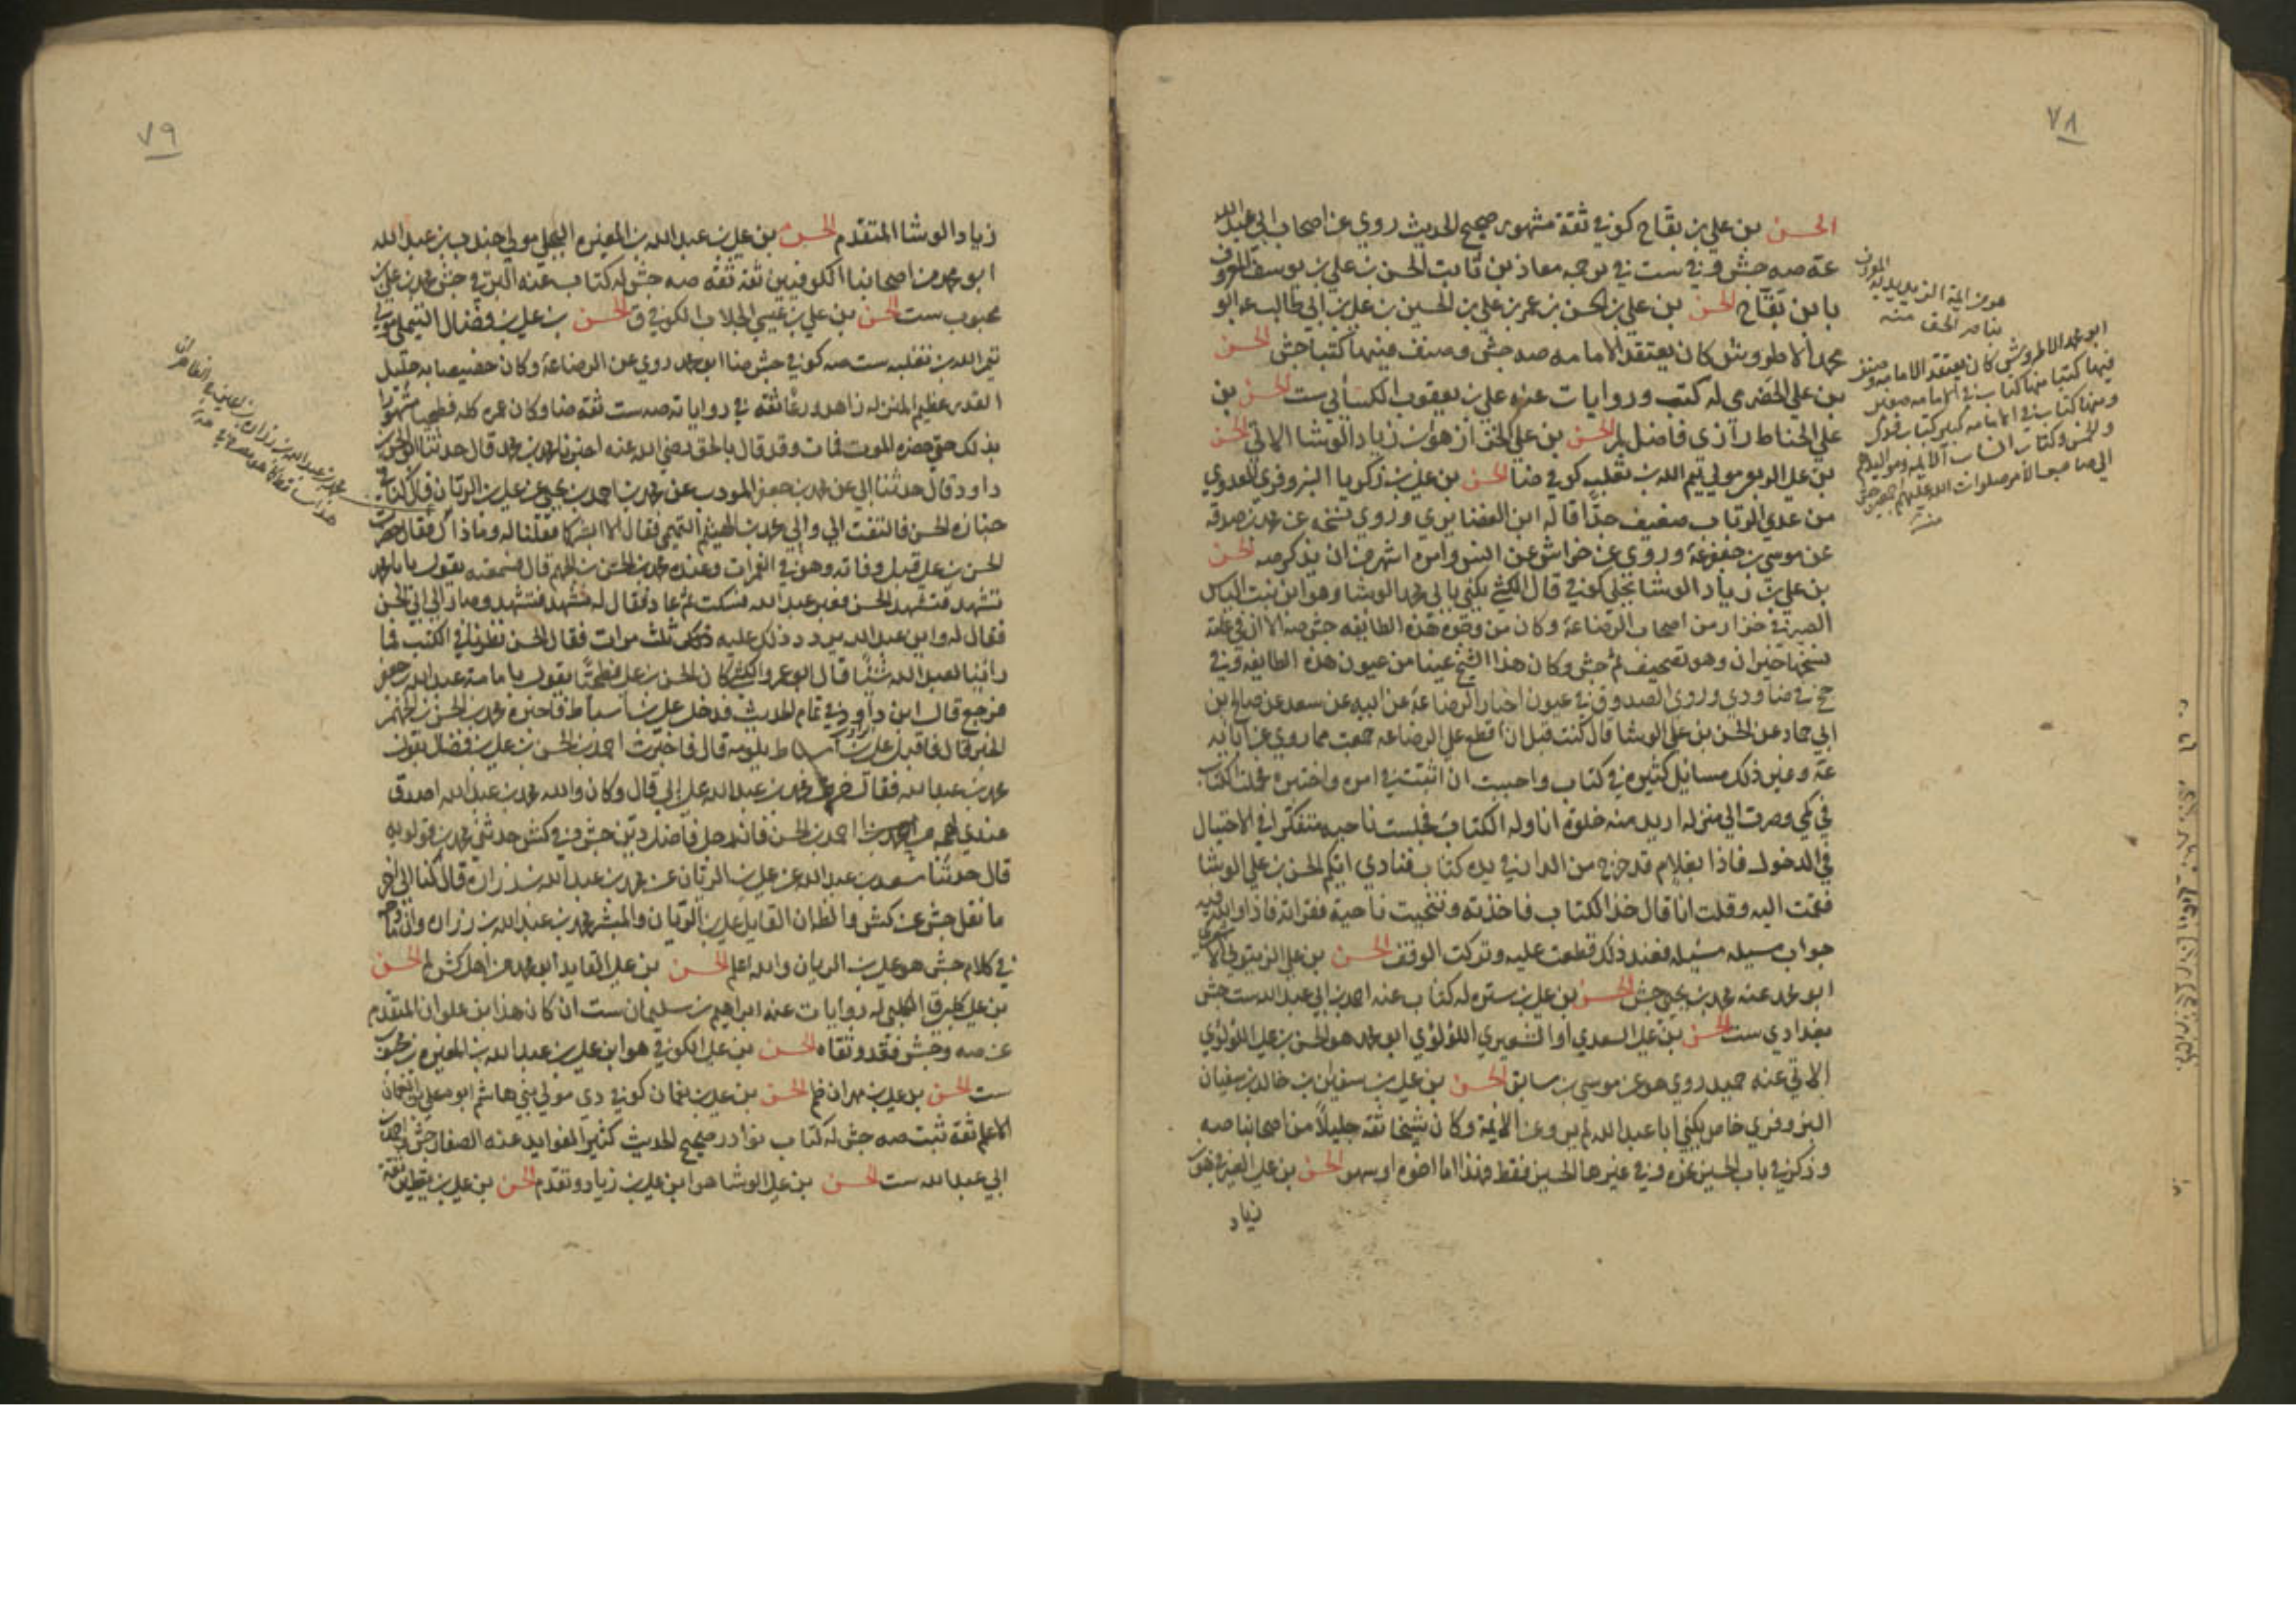 ٧٨
الحسن بن علي بن بقاح كوفي ثقة مشهور صحيح الحديث روي عن اصحاب ابي عبد الله
عه صه جش وفي ست في ترجمه معاذ بن ثابت الحسن بن علي بن يوسف المعروف
بابن بقاح الحسن بن علي بن الحسن بن عمر بن علي بن الحسين بن علي بن ابي طالب عه ابو
محمد الاطروش كان يعتقد الامامه صه جش وصنف فيها كتبا جش الحسن
بن علي الحضرمي له كتب وروايات عنه علي بن يعقوب الكسائي ست الحسن بن
علي الحناط رازي فاضل لم الحسن بن علي الخزاز هو ابن زياد الوشا الاتي الحسن
بن علي الربعي مولي تيم الله بن ثعلبه كوفي ضا الحسن بن علي بن زكريا البزوفري العدوي
من عدي الرباب ضعيف جدا قاله ابن الغضايري وروي نسخه عن محمد بن صدقه
عن موسي بن جعفر عه وروي عن خراش عن انس وامره اشهر من ان يذكر صه الحسن
بن علي بن زياد الوشا بجلي كوفي قال الكشي يكني بابي محمد الوشا وهو ابن بنت الياس
الصيرفي خزاز من اصحاب الرضا عه وكان من وجوه هذه الطايفه جش صه الا ان في
نسخها خيران وهو تصحيف ثم جش وكان هذا الشيخ عينا من عيون هذه الطايفه وفي
جخ في ضا ودي وروي الصدوق في عيون اخبار الرضا عه عن ابيه عن سعد عن صالح بن
ابي حماد عن الحسن بن علي الوشا قال كنت قبل ان اقطع علي الرضا عه جمعت مما روي عن ابايه
عه وغير ذلك مسايل كثيره في كتاب واحببت ان اثبت في امره واختبره فحملت الكتاب
في كمي وصرت الي منزله اريد منه خلوة اناوله الكتاب فجلست ناحيه متفكرا في الاحتيال
في الدخول فاذا بغلام قد خرج من الدار في يده كتاب فنادي ايكم الحسن بن علي الوشا
فقمت اليه وقلت انا قال خذ الكتاب فاخذته وتنحيت ناحية فقراته فاذا والله فيه
جواب مسيله مسيله فعند ذلك قطعت عليه وتركت الوقف الحسن بن علي الزيتوني الاشعري
ابو محمد عنه محمد بن يحيي جش الحسن بن علي بن سبره له كتاب عنه احمد بن ابي عبد الله ست جش
بغدادي ست الحسن بن علي السعدي او اللؤلؤي ابو محمد هو الحسن بن علي اللؤلؤي
الاتي عنه حميد روي هو عن موسي بن سابق الحسن بن علي بن سفين بن خالد بن سفيان
البزوفري خاص يكني ابا عبد الله لم يرو عن الايمة وكان شيخا ثقة جليلا من اصحابنا صه
وذكر في باب الحسين غيره وفي غيرها الحسين فقط وهذا اما اخوه او سهو الحسن بن علي الصيرفي هو
زياد
هو من ائمة الزيديه المعروف
بناصر الحق منه
ابو محمد الاطروش كان يعتقد الامامه وصنف
فيها كتبا منها كتاب في الامامه صغير
ومنها كتاب في الامامه كبير كتاب فدك
والخمس وكتاب انساب الايمه ومواليدهم
الي صاحب الامر صلوات الله عليهم اجمعين جش
٧٩
زياد الوشا المتقدم الحسن بن علي بن عبد الله بن المغيره البجلي مولي جندب بن عبد الله
ابو محمد من اصحابنا الكوفيين ثقة ثقة صه جش له كتاب عنه البرقي جش محمد بن علي بن
محبوب ست الحسن بن علي بن عيسي الجلاب الكوفي ق الحسن بن علي بن فضال التيملي
تيم الله بن ثعلبه ست صه كوفي جش ضا ابو محمد روي عن الرضا عه وكان خصيصا به جليل
القدر عظيم المنزله زاهد ورعا ثقة في رواياته صه ست ثقة ضا وكان عمره كله فطحيا مشهورا
بذلك حتي حضره الموت فمات وقد قال بالحق رضي الله عنه اخبرنا محمد بن محمد قال حدثنا ابو الحسن بن
داود قال حدثنا ابي عن محمد بن جعفر المودب عن محمد بن احمد بن يحيي عن علي بن الريان قال كنا في
جنازه الحسن فالتفت الي والي محمد بن الهيثم التميمي فقال الا ابشركما فقلنا له وما ذاك فقال حضرت
الحسن بن علي قبل وفاته وهو في الغمرات وعنده محمد بن الحسن بن الجهم قال فسمعته يقول يا ابا محمد
تشهد فتشهد الحسن فعبر عبد الله فسكت ثم عاد فقال له تشهد فتشهد وصار الي ابي الحسن
فقال له واين عبد الله يردد ذلك عليه ثلث مرات فقال الحسن نظرنا في الكتب فما
راينا لعبد الله شيئا قال ابو عمرو الكشي كان الحسن بن علي فطحيا يقول بامامة عبد الله بن جعفر
فرجع قال ابن داود في تمام الحديث فدخل علي بن اسباط فاخبره محمد بن الحسن بن الجهم
الخبر قال فاقبل علي بن اسباط يلومه قال فاخبرت احمد بن الحسن بن علي بن فضال بقول
محمد بن عبد الله فقال حرف محمد بن عبد الله علي ابي قال وكان والله محمد بن عبد الله اصدق
عندي لهجه من احمد بن الحسن فانه رجل فاضل دين جش وفي كش حدثني محمد بن قولويه
قال حدثنا سعد بن عبد الله عن علي بن الريان عن محمد بن عبد الله بن زراره قال كنا الي اخر
ما نقل جش عن كش والظاهر ان القايل علي بن الريان والمبشر محمد بن عبد الله بن زراره وان
في كلام جش هو علي بن الريان والله اعلم الحسن بن علي القايد ابو محمد من اهل كش لم الحسن
بن علي الكلبي له روايات عنه ابراهيم بن سليمان ست ان كان هذا ابن علوان المتقدم
عن صه وجش فقد وثقاه الحسن بن علي الكوفي هو ابن علي بن عبد الله بن المغيره
ست الحسن بن علي بن مهران الحسن بن علي بن نعمان كوفي دي مولي بني هاشم ابوه علي بن النعمان
الاعلم ثقة ثبت صه جش له كتاب نوادر صحيح الحديث كثير الفوايد عنه الصفار جش واحمد بن
ابي عبد الله ست الحسن بن علي الوشا هو ابن علي بن زياد وتقدم الحسن بن علي بن يقطين ثقة